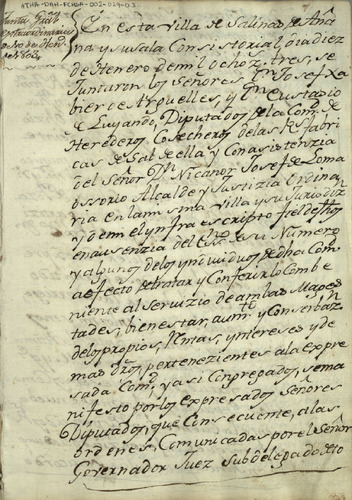 ATHA-DAH-FCHGA-002-029-03
Junta Gral
extraordinaria
de 10 de
de 1803
En esta Villa de Salinas de Aña
na y su sala Consistorial, oi a diez
de Henero de mil ochoz. tres, se
Juntaron los Señores Dn Josef Xa
bier de Arguelles, y Dn Eustasio
de Luyando, Diputados de la Comd. de
Herederos Cosecheros de las Rs fabri
cas de Sal de ella y con asistenzia
del Señor Dn Vicanor Josef de Loma
Ossorio Alcalde y Justizia Ordina
ria en la misma Villa y su Jurisdizn
y de mi el ynfraescripto fiel de fhos
en ausenzia del Esno de su Numero
y algunos de los yndividuos de dha Comd
a efecto de tratar y Conferir lo Combe
niente al Servizio de ambas Mages
tades, bien estar, aumto y Conserbazn
de los propios, Rentas, yntereses y de
mas dros, pertenezientes a la expre
sada Comd, y asi Congregados, se ma
nifesto por los expresados Señores
Diputados, que Consecuente, a las
ordenes, Comunicadas por el Señor
Governador Juez Subdelegado de